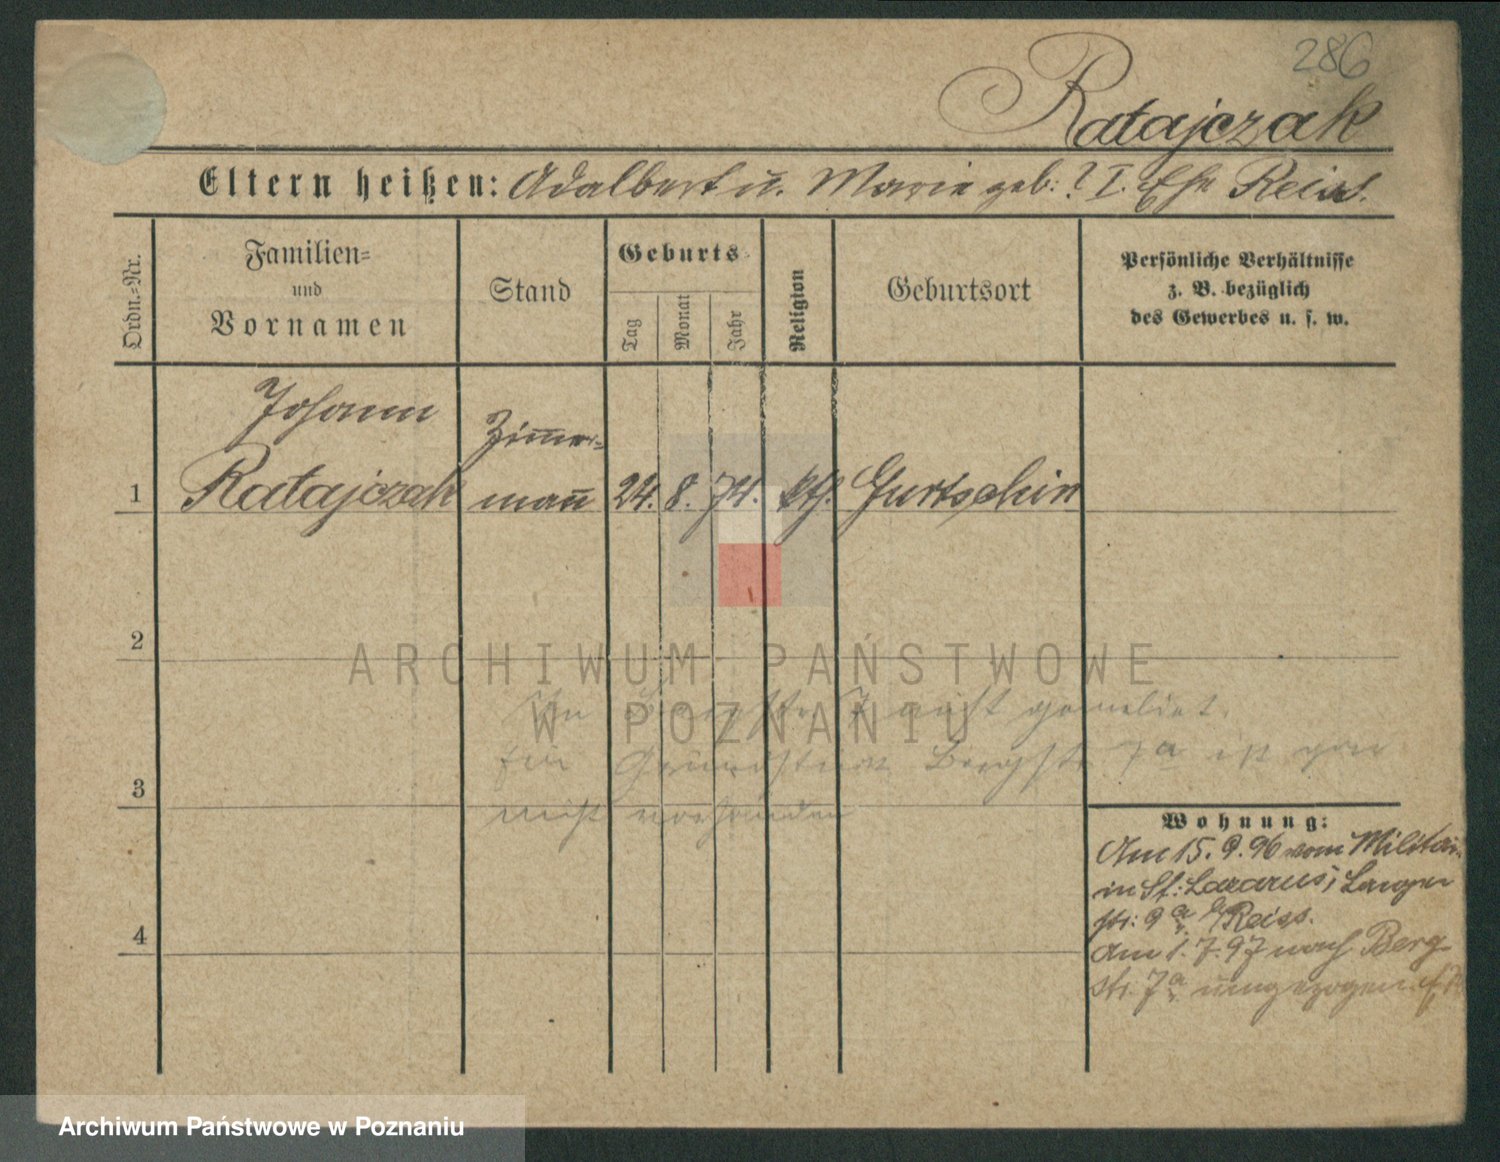 286
Ratajczak
Eltern heißen: Adalbert u. Marie geb: ? I. Ehe Reiss.
Ordn.-Nr.
Familien-
und
Vornamen
Stand
Geburts-
Tag
Monat
Jahr
Religion
Geburtsort
Persönliche Verhältnisse
z. B. bezüglich
des Gewerbes u. s. w.
Johann
Zimmer-
1 Ratajczak mann 24. 8. 74. kth. Gurtschin
2
ARCHIWUM PAŃSTWOWE
W POZNANIU
nicht gemeldet.
Ein Grundstück Bergstr. 7a ist gar
nicht vorhanden
3
Wohnung:
Am 15. 9. 96 vom Militär
in St: Lazarus, Langen
str: 9a b/Reiss.
Am 1. 7. 97 nach Berg-
str. 7a umgezogen.
4
Archiwum Państwowe w Poznaniu